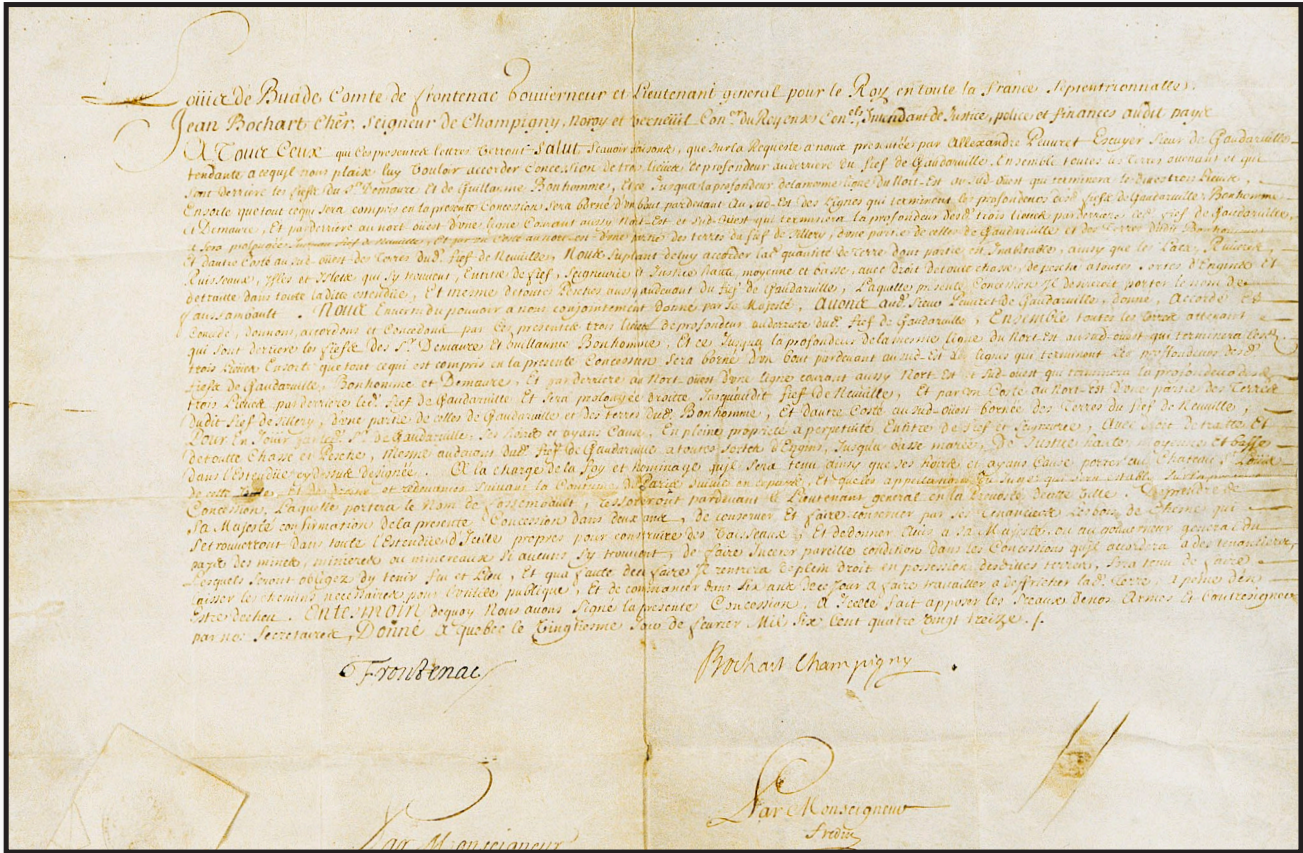 Louis de Buade Comte de frontenac Gouverneur et Lieutenant general pour le Roy en toute la france septentrionnalle,
Jean Bochart Cher. Seigneur de Champigny, Noroy et Verneüil Con.er du Roy en ses Con.ls, Intendant de Justice, police et finances audit pays
A Tous Ceux qui Ces presentes lettres Verront Salut Scavoir faisons, que sur la Requeste a nous presentée par Allexandre Peuvret Escuyer Sieur de Gaudarville
tendante a ce qu'il nous plaise luy vouloir accorder Concession de trois lieües de profondeur au derriere du fief de Gaudarville Ensemble toutes les terres qui
sont derriere les fiefs du Sr. Demaure Et de Guillaume Bonhomme, Et ce Jusqua la profondeur de la mesme ligne du Nort-Est au Sud-ouest qui terminera les trois lieues,
Ensorte que tout ce qui sera compris en la presente Concession Sera borné d'un bout pardevant Au Sud-Est des Lignes qui terminent les profondeurs des fiefs de Gaudarville, Bonhomme
Et Demaure, Et par derriere au nort ouest d'une ligne Courant aussy Nort-Est et Sud-Ouest qui terminera la profondeur des trois lieües par derriere led. fief de Gaudarville,
Et sera prolongée fief de Neuville, Et par un Costé au Nort-est d'une partie des terres du fief de Sillery, d'une partie de celles de Gaudarville et des Terres dudit Bonhomme
Et d'autre Costé au sud-ouest des Terres dud. fief de Neuville, Nous Supliant de luy accorder lad. quantité de terre, dont partie en, ainsy que les Lacs, Rivieres,
Ruisseaux, Isles et Islets qui Sy trouvent, En titre de fief, Seigneurie Et Justice haute moyenne et basse, avec droit de toute chasse, de pesche a toutes Sortes d'Engins Et
de traitte dans toute laditte estendüe, Et mesme de toute Pesches aussy audevant du fief de Gaudarville, Laquelle presente Concession Il desireroit porter le nom de
faussambault. Nous En vertu du pouvoir a nous conjointement donné par sa Majesté, Avons aud. Sieur Peuvret de Gaudarville, donné, Accordé Et
Concedé, donnons, accordons et Concedons par Ces presentes trois lieües de profondeur au derriere dud. fief de Gaudarville, Ensemble toutes les terres
qui sont derriere les fiefs des Sr. Demaure Et Guillaume Bonhomme, Et ce Jusques la profondeur de la mesme ligne du Nort-Est au sud-ouest qui terminera lesd.
trois lieües Ensorte que tout ce qui est compris en la presente Concession Sera borné d'un bout pardevant au sud-Est des lignes qui terminent les profondeurs desd.
fiefs de Gaudarville, Bonhomme et Demaure, Et par derriere au Nort-ouest d'une ligne courant aussy Nort-Est et Sud-ouest qui terminera la profondeur des
trois lieües par derriere led. fief de Gaudarville Et sera prolongée droitte Jusqu'audit fief de Neuville, Et par un Costé au Nort-est d'une partie des Terres
dudit fief de Sillery, d'une partie de celles de Gaudarville et des terres dud. Bonhomme, Et d'autre Costé au sud-ouest bornée des Terres du fief de Neuville,
Pour En Jouir par led. Sr. de Gaudarville, Ses hoirs et ayans Cause, En pleine proprieté a perpetuité En titre de fief et Seigneurie, Avec droit de traitte Et
de toute Chasse et Pesche, Mesme audevant dud. fief de Gaudarville a toutes sortes d'Engins, Jusqu'a basse marée, De Justice haute moyenne Et basse
dans l'Estendüe cy dessus designée. A la charge de la foy et hommage qu'il Sera tenu ainsy que ses hoirs et ayans Cause porter au Chateau St. Loüis
de cette, Et redevances Suivant la Coutume de Paris Suivie en ce pays, Et que les appellations du Juge qui sera estably
Concession, Laquelle portera le Nom de fossembault, ressortiront pardevant le Lieutenant general en la Prevosté de cette Ville. De prendre de
Sa Majesté confirmation de la presente Concession dans deux ans, de conserver Et faire conserver par ses Tenanciers les bois de Chesne qui
se trouverront dans toute l'Estendüe d'Icelle propres pour construire des Vaisseaux, Et de donner avis a Sa Majesté ou au gouverneur general du
pays des mines, minieres ou mineraux Si aucuns Sy trouvent, de faire Inserer pareille condition dans les Concessions qu'il accordera a des tenantiers,
Lesquels seront obligez dy tenir feu et Lieu, Et qua faute de ce faire Il rentrera de plein droit en possession desdittes terres, Sera tenu de faire
laisser les chemins necessaires pour l'utilité publique, Et de commancer dans six ans de ce Jour a faire travailler a defricher lad. terre, a peine d'en
estre dechu. En tesmoin dequoy Nous avons signé la presente Concession, A Icelle fait apposer les Sceaux de nos Armes Et Contresigner
par nos Secretaires, Donné a Quebec le Vingtiesme Jour de fevrier Mil Six Cent quatre vingt treize.
Frontenac
Bochart Champigny
Par Monseigneur
Par Monseigneur